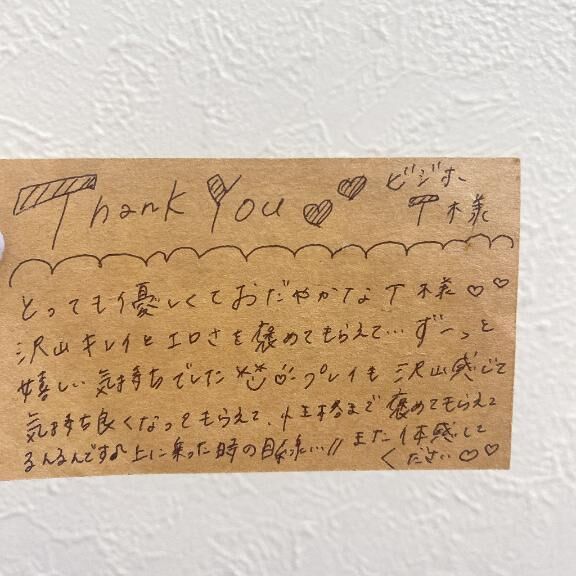 Thank You♡♡ ビジホー
T木様
とっても優しくておだやかなT木様♡♡
沢山キレイとエロさを褒めてもらえて…ずーっと
嬉しい気持ちでした プレイも沢山感じて
気持ち良くなってもらえて、性格まで褒めてもらえて
るんるんです♪上に乗った時の目線…// また体感して
ください♡♡